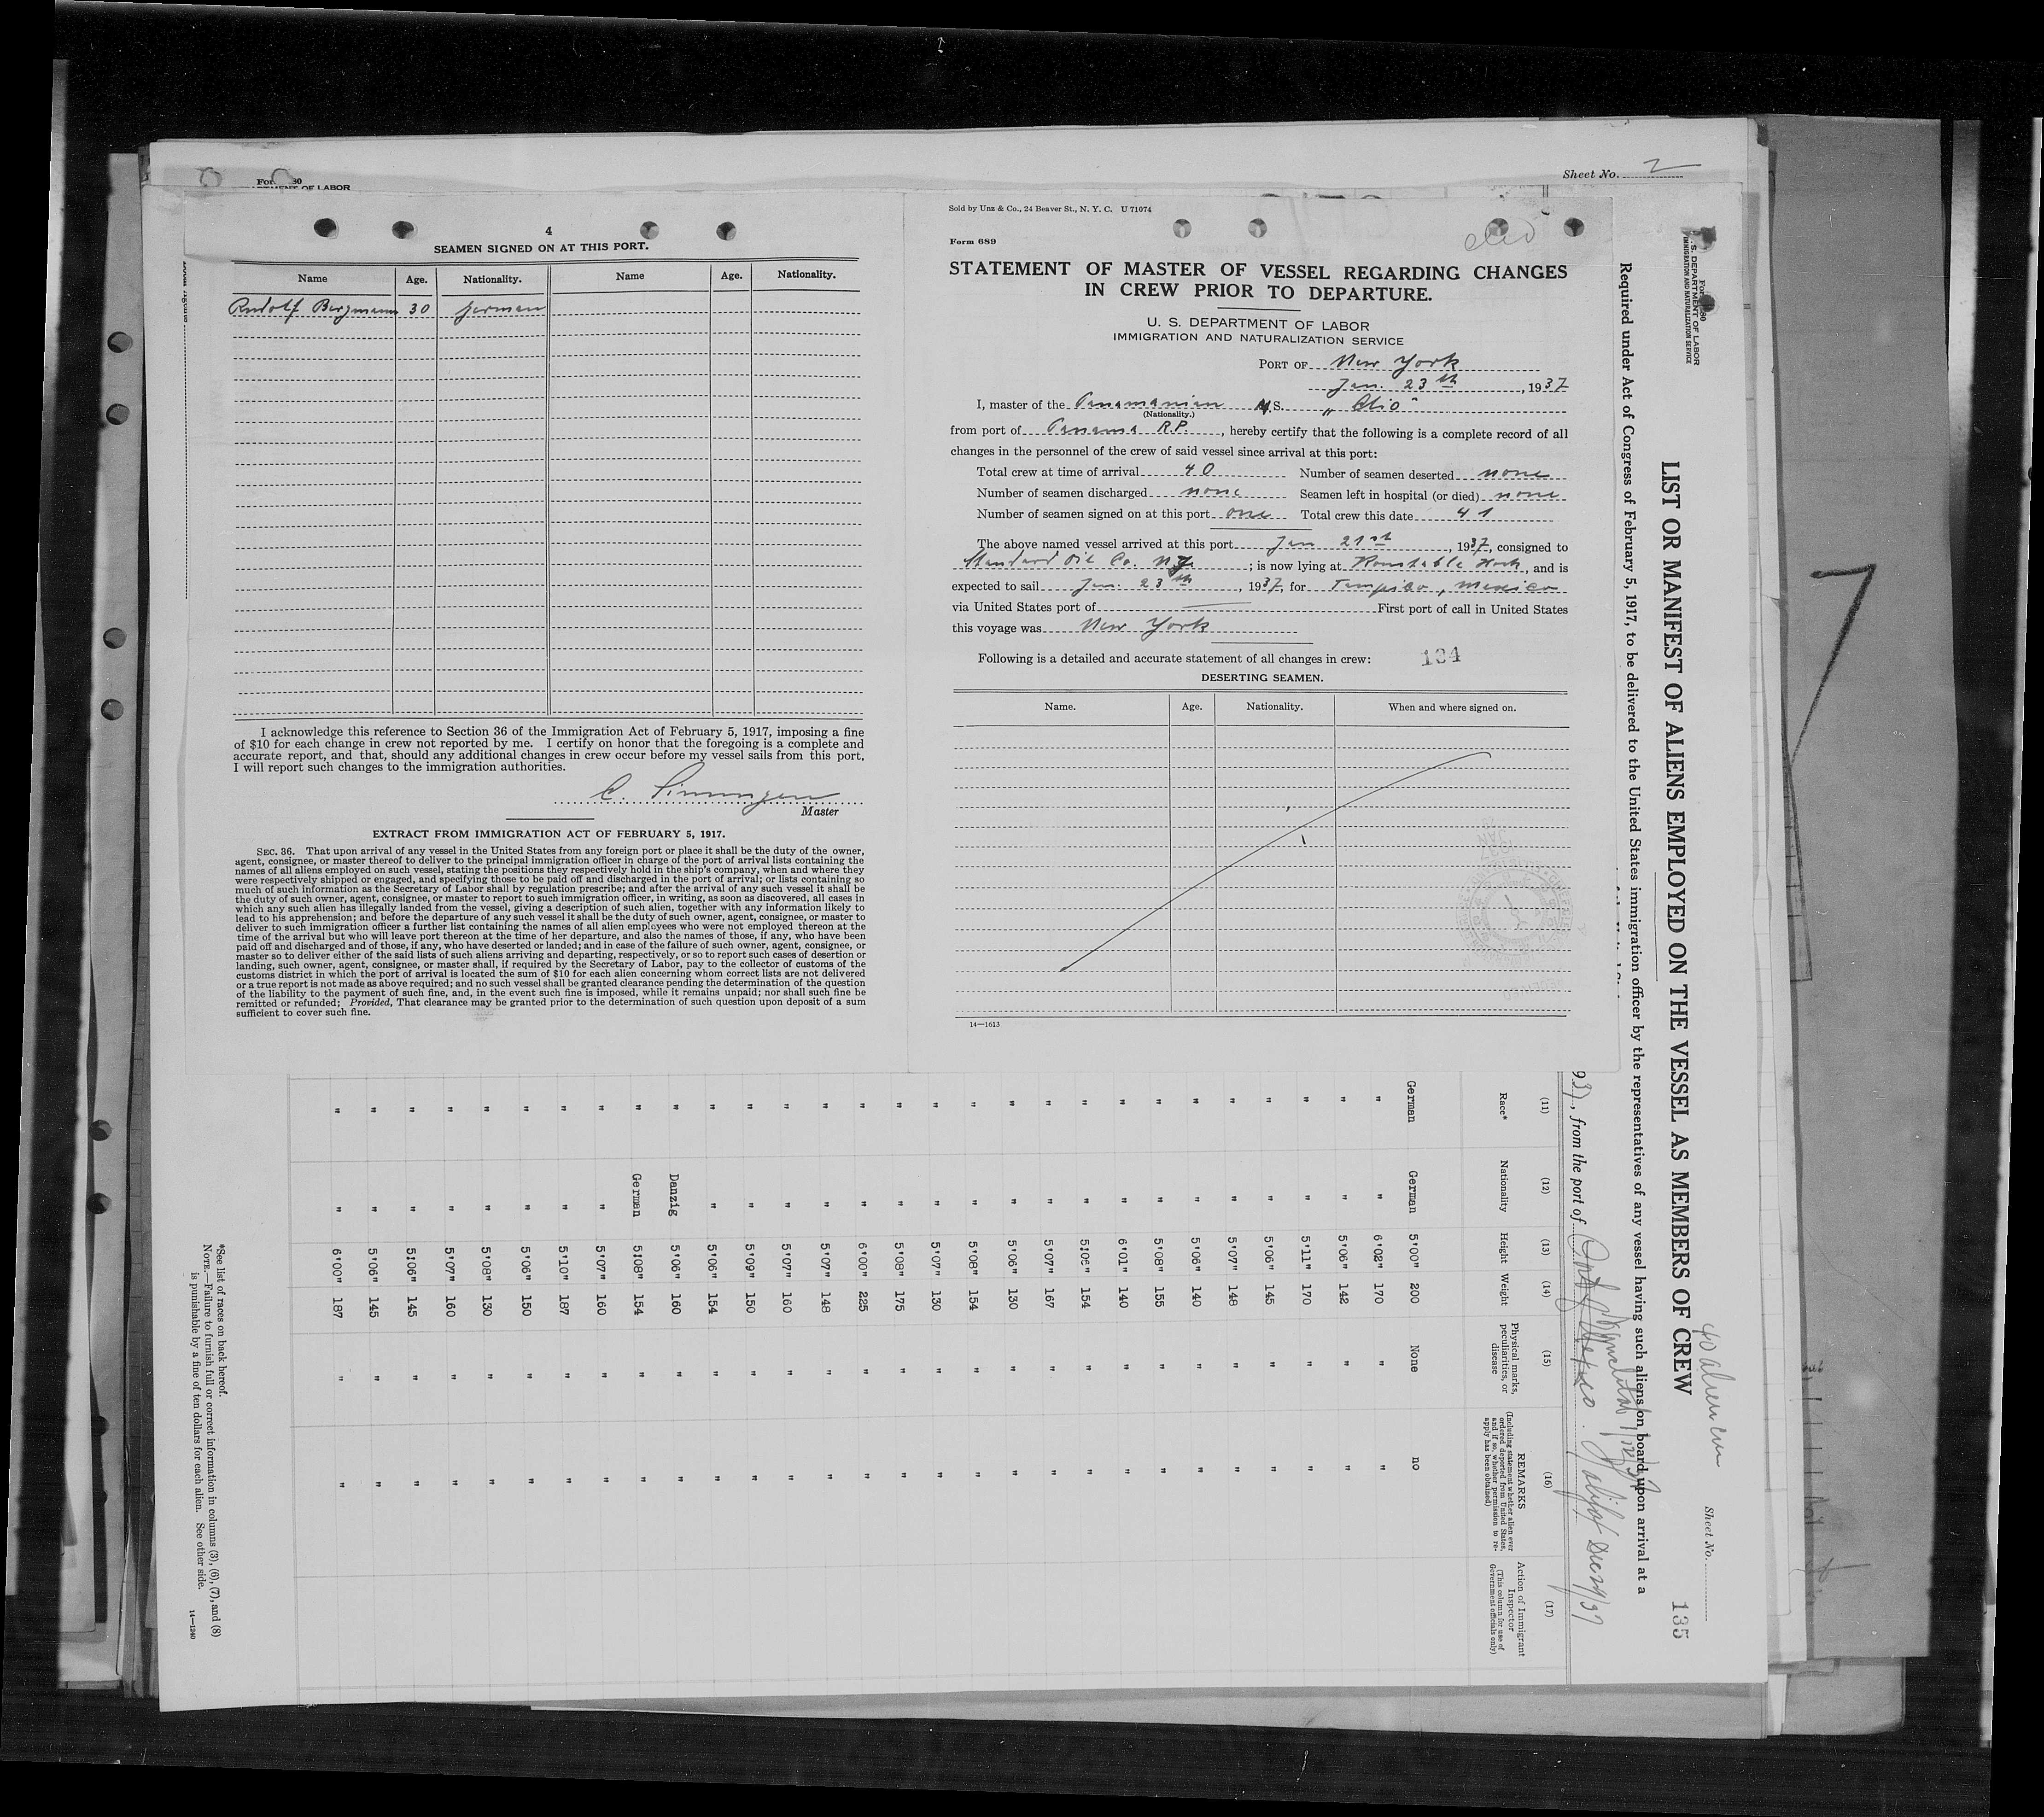 Sheet No. 2
DEPARTMENT OF LABOR
4
SEAMEN SIGNED ON AT THIS PORT.
Name Age. Nationality. Name Age. Nationality.
Rudolf Bergmann 30 german
I acknowledge this reference to Section 36 of the Immigration Act of February 5, 1917, imposing a fine
of $10 for each change in crew not reported by me. I certify on honor that the foregoing is a complete and
accurate report, and that, should any additional changes in crew occur before my vessel sails from this port,
I will report such changes to the immigration authorities.
C.
Master
EXTRACT FROM IMMIGRATION ACT OF FEBRUARY 5, 1917.
SEC. 36. That upon arrival of any vessel in the United States from any foreign port or place it shall be the duty of the owner,
agent, consignee, or master thereof to deliver to the principal immigration officer in charge of the port of arrival lists containing the
names of all aliens employed on such vessel, stating the positions they respectively hold in the ship's company, when and where they
were respectively shipped or engaged, and specifying those to be paid off and discharged in the port of arrival; or lists containing so
much of such information as the Secretary of Labor shall by regulation prescribe; and after the arrival of any such vessel it shall be
the duty of such owner, agent, consignee, or master to report to such immigration officer, in writing, as soon as discovered, all cases in
which any such alien has illegally landed from the vessel, giving a description of such alien, together with any information likely to
lead to his apprehension; and before the departure of any such vessel it shall be the duty of such owner, agent, consignee, or master to
deliver to such immigration officer a further list containing the names of all alien employees who were not employed thereon at the
time of the arrival but who will leave port thereon at the time of her departure, and also the names of those, if any, who have been
paid off and discharged and of those, if any, who have deserted or landed; and in case of the failure of such owner, agent, consignee, or
master so to deliver either of the said lists of such aliens arriving and departing, respectively, or so to report such cases of desertion or
landing, such owner, agent, consignee, or master shall, if required by the Secretary of Labor, pay to the collector of customs of the
customs district in which the port of arrival is located the sum of $10 for each alien concerning whom correct lists are not delivered
or a true report is not made as above required; and no such vessel shall be granted clearance pending the determination of the question
of the liability to the payment of such fine, and, in the event such fine is imposed, while it remains unpaid; nor shall such fine be
remitted or refunded; Provided, That clearance may be granted prior to the determination of such question upon deposit of a sum
sufficient to cover such fine.
Sold by Unz & Co., 24 Beaver St., N. Y. C. U 71074
Form 689
clio
STATEMENT OF MASTER OF VESSEL REGARDING CHANGES
IN CREW PRIOR TO DEPARTURE.
U. S. DEPARTMENT OF LABOR
IMMIGRATION AND NATURALIZATION SERVICE
PORT OF New York
Jan. 23th, 1937
I, master of the Panamanian M.S. "Clio"
(Nationality.)
from port of Panama R.P., hereby certify that the following is a complete record of all
changes in the personnel of the crew of said vessel since arrival at this port:
Total crew at time of arrival 40 Number of seamen deserted none
Number of seamen discharged none Seamen left in hospital (or died) none
Number of seamen signed on at this port one Total crew this date 41
The above named vessel arrived at this port Jan 21st, 1937, consigned to
Standard Oil Co. N.J.; is now lying at Constable Hook, and is
expected to sail Jan. 23th, 1937, for Tampico, Mexico
via United States port of First port of call in United States
this voyage was New York
Following is a detailed and accurate statement of all changes in crew: 134
DESERTING SEAMEN.
Name. Age. Nationality. When and where signed on.
14—1613
Form 680
U. S. DEPARTMENT OF LABOR
IMMIGRATION AND NATURALIZATION SERVICE
40 alien crew
Sheet No.
135
LIST OR MANIFEST OF ALIENS EMPLOYED ON THE VESSEL AS MEMBERS OF CREW
Required under Act of Congress of February 5, 1917, to be delivered to the United States immigration officer by the representatives of any vessel having such aliens on board upon arrival at a
937, from the port of
(11) (12) (13) (14) (15) (16) (17)
Race* Nationality Height Weight Physical marks, peculiarities, or disease REMARKS (Including statement whether alien ever ordered deported from United States, and if so, whether permission to reapply has been obtained) Action of Immigrant Inspector (This column for use of Government officials only)
German German 5'00" 200 None no
" " 6'02" 170 " "
" " 5'06" 142 " "
" " 5'11" 170 " "
" " 5'06" 145 " "
" " 5'07" 148 " "
" " 5'06" 140 " "
" " 5'08" 155 " "
" " 6'01" 140 " "
" " 5'06" 154 " "
" " 5'07" 167 " "
" " 5'06" 130 " "
" " 5'08" 154 " "
" " 5'07" 130 " "
" " 5'08" 175 " "
" " 6'00" 225 " "
" " 5'07" 148 " "
" " 5'07" 160 " "
" " 5'09" 150 " "
" " 5'06" 154 " "
" Danzig 5'06" 160 " "
" German 5'08" 154 " "
" " 5'07" 160 " "
" " 5'10" 187 " "
" " 5'06" 150 " "
" " 5'08" 130 " "
" " 5'07" 160 " "
" " 5'06" 145 " "
" " 5'06" 145 " "
" " 6'00" 187 " "
*See list of races on back hereof.
NOTE.—Failure to furnish full or correct information in columns (3), (6), (7), and (8)
is punishable by a fine of ten dollars for each alien. See other side.
14—1240